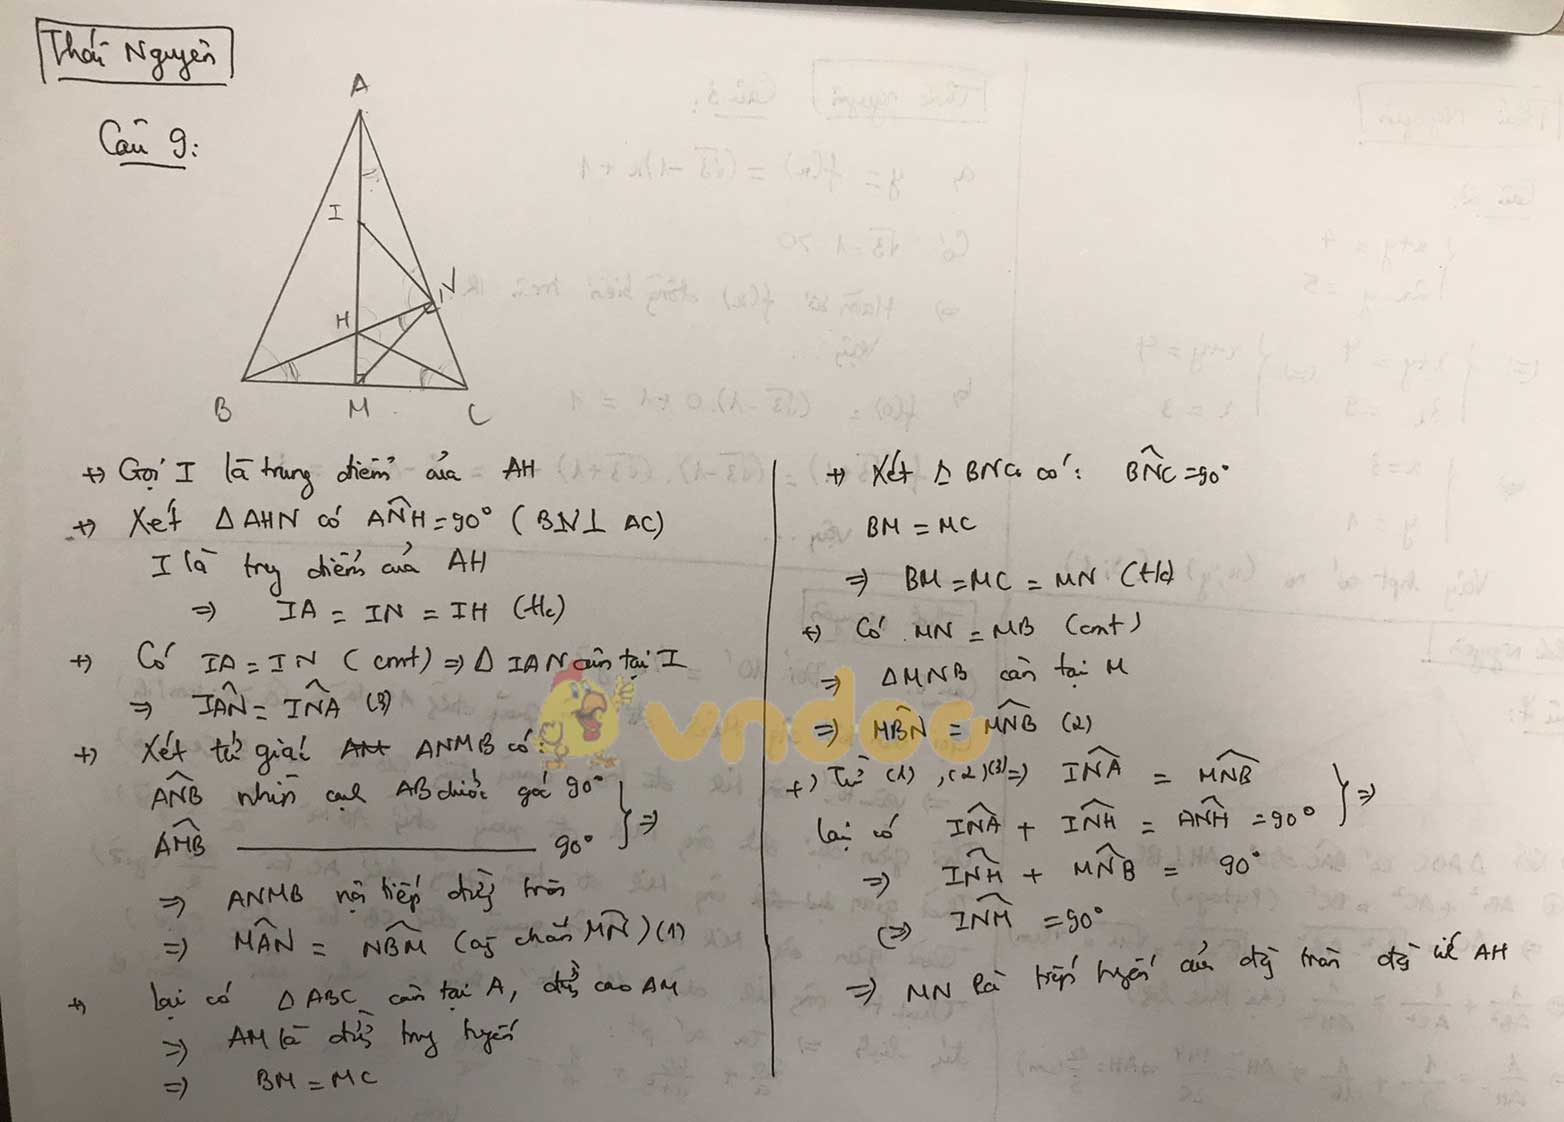 Thái Nguyên
Câu 9:
A
I
N
H
B
M
C
+) Gọi I là trung điểm của AH
+) Xét Δ AHN có AN̂H = 90° (BN⊥ AC)
I là trg điểm của AH
⇒ IA = IN = IH (t/c)
+) Có IA = IN (cmt) ⇒ Δ IAN cân tại I
⇒ IÂN = IN̂A (3)
+) Xét tứ giác ANMB có:
AN̂B nhìn cạnh AB dưới góc 90°
AM̂B 90° } ⇒
⇒ ANMB nội tiếp đường tròn
⇒ MÂN = NB̂M (cùng chắn MN) (1)
+) Lại có Δ ABC cân tại A, đường cao AM
⇒ AM là đường trung tuyến
⇒ BM = MC
+) Xét Δ BNC có: BN̂C = 90°
BM = MC
⇒ BM = MC = MN (t/c)
+) Có MN = MB (cmt)
⇒ ΔMNB cân tại M
⇒ MB̂N = MN̂B (2)
+) Từ (1), (2) (3) ⇒ IN̂A = MN̂B
lại có IN̂A + IN̂H = AN̂H = 90° } ⇒
⇒ IN̂H + MN̂B = 90°
(⇒) IN̂M = 90°
⇒ MN là tiếp tuyến của đg tròn đg kí AH
vndoc